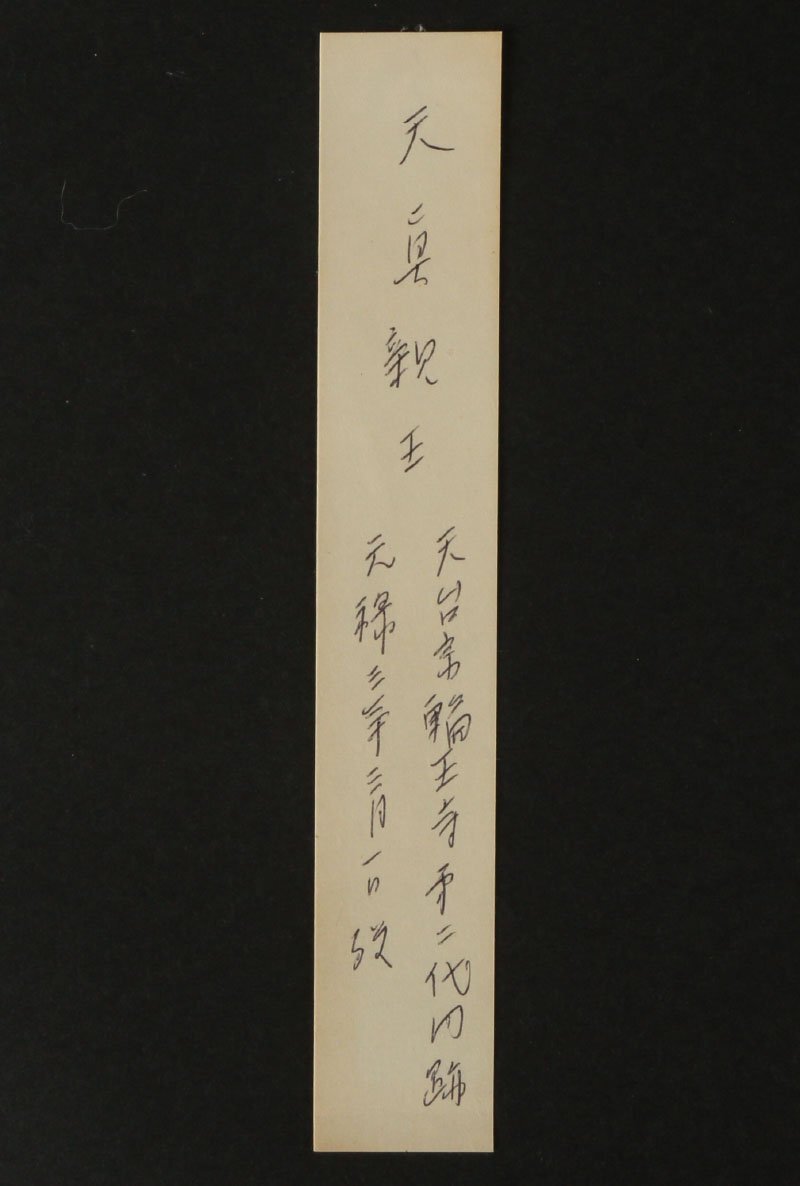 天真親王
天台宗輪王寺第二代門跡
元禄三年三月一日歿